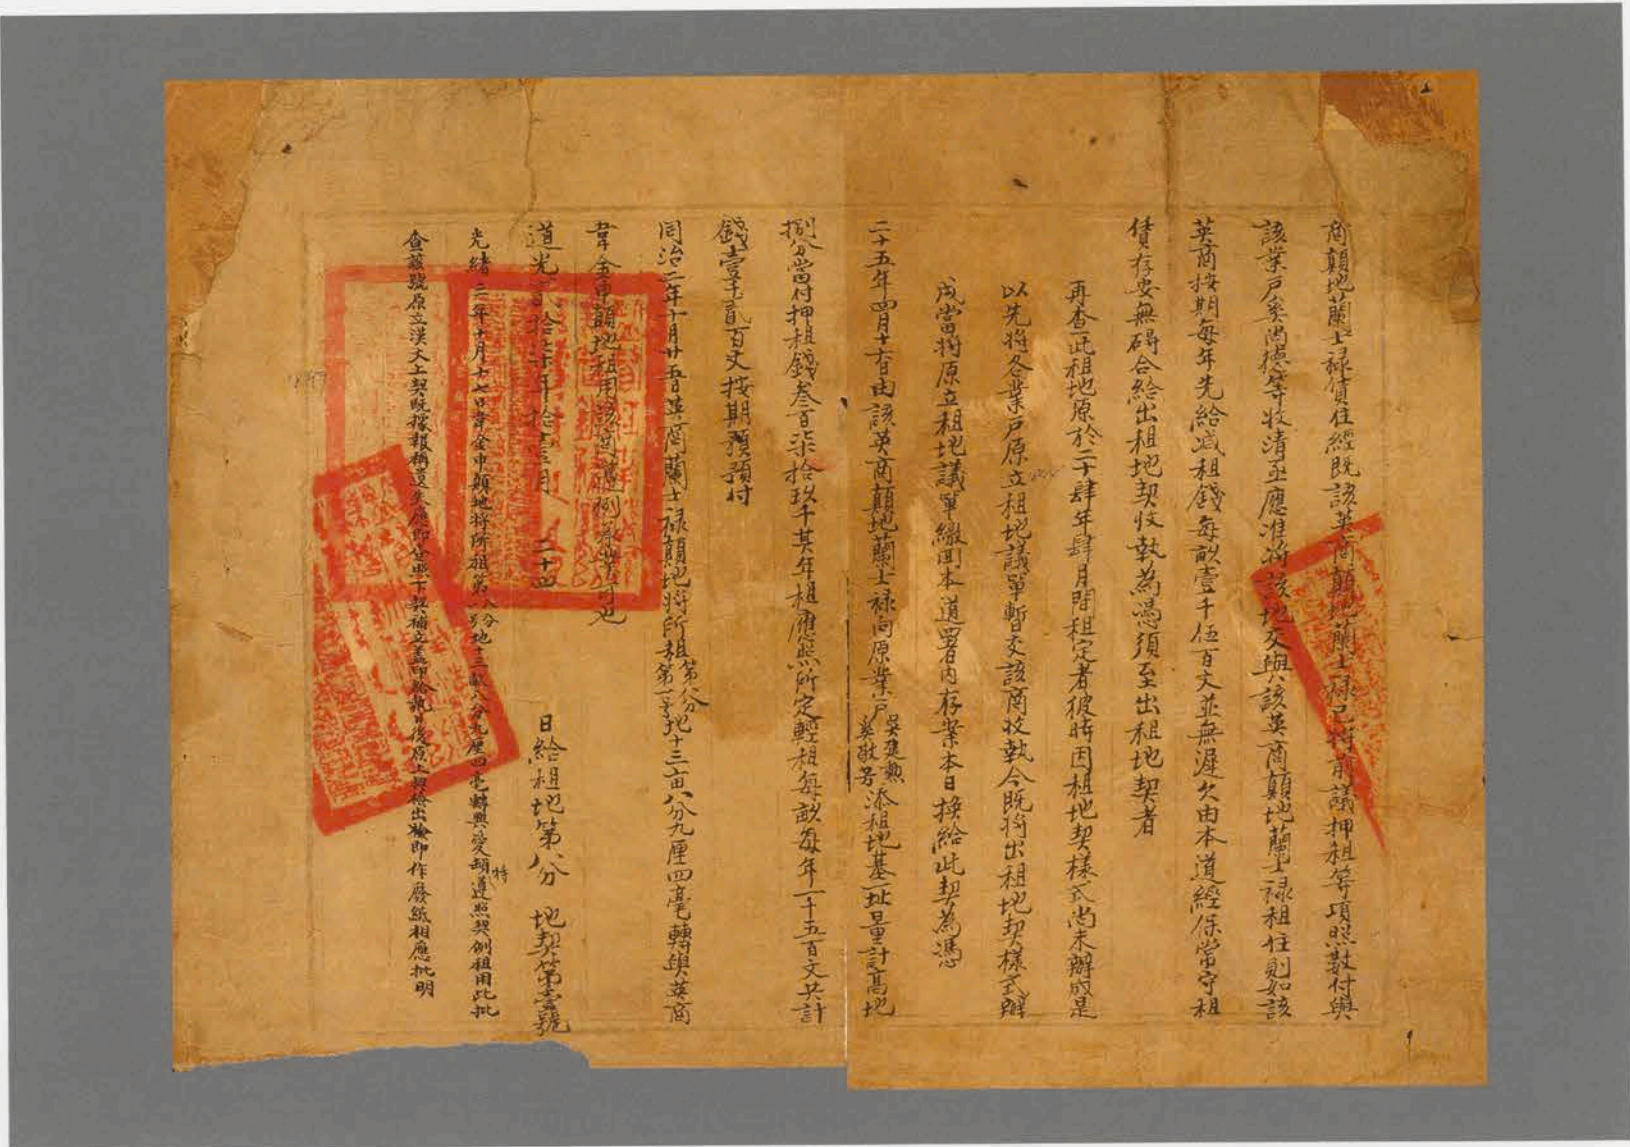 商顛地蘭士祿賃住經既該英商顛地蘭士祿已將前議押租等項照數付與
該業戶奚尚德等收清亟應准將該地交與該英商顛地蘭士祿租住則如該
英商按期每年先給減租錢每畝壹千伍百文並無遲欠由本道經保常守租
賃存安無碍合給出租地契收執為憑須至出租地契者
再查此租地原於二十肆年肆月間租定者彼時因租地契樣式尚未辦成是
以先將各業戶原立租地議單暫交該商收執今既將出租地契樣式辦
成當將原立租地議單繳回本道署內存案本日換給此契為憑
二十五年四月十六日由該英商顛地蘭士祿向原業戶吳建勲奚敬芳添租地基一址量計高地
捌分當付押租錢叁百柒拾玖千其年租應照所定輕租每畝每年一千五百文共計
錢壹千貳百文按期預付
同治二年十月廿五日英商蘭士祿顛地將所租第八分第一號地十三畝八分九厘四毫轉與英商
韋金申顛地租用該商遵例承業可也
道光貳拾柒年拾壹月二十四日給租地第八分地契第壹號
光緒三年十月十七日韋金申顛地將所租第八分一號地十三畝八分九厘四毫轉與愛頡特遵照契例租用此批
查舊號原立漢文上契既據報稱遺失應即查照下契補立蓋印給執日後原上契檢出繳即作廢紙相應批明